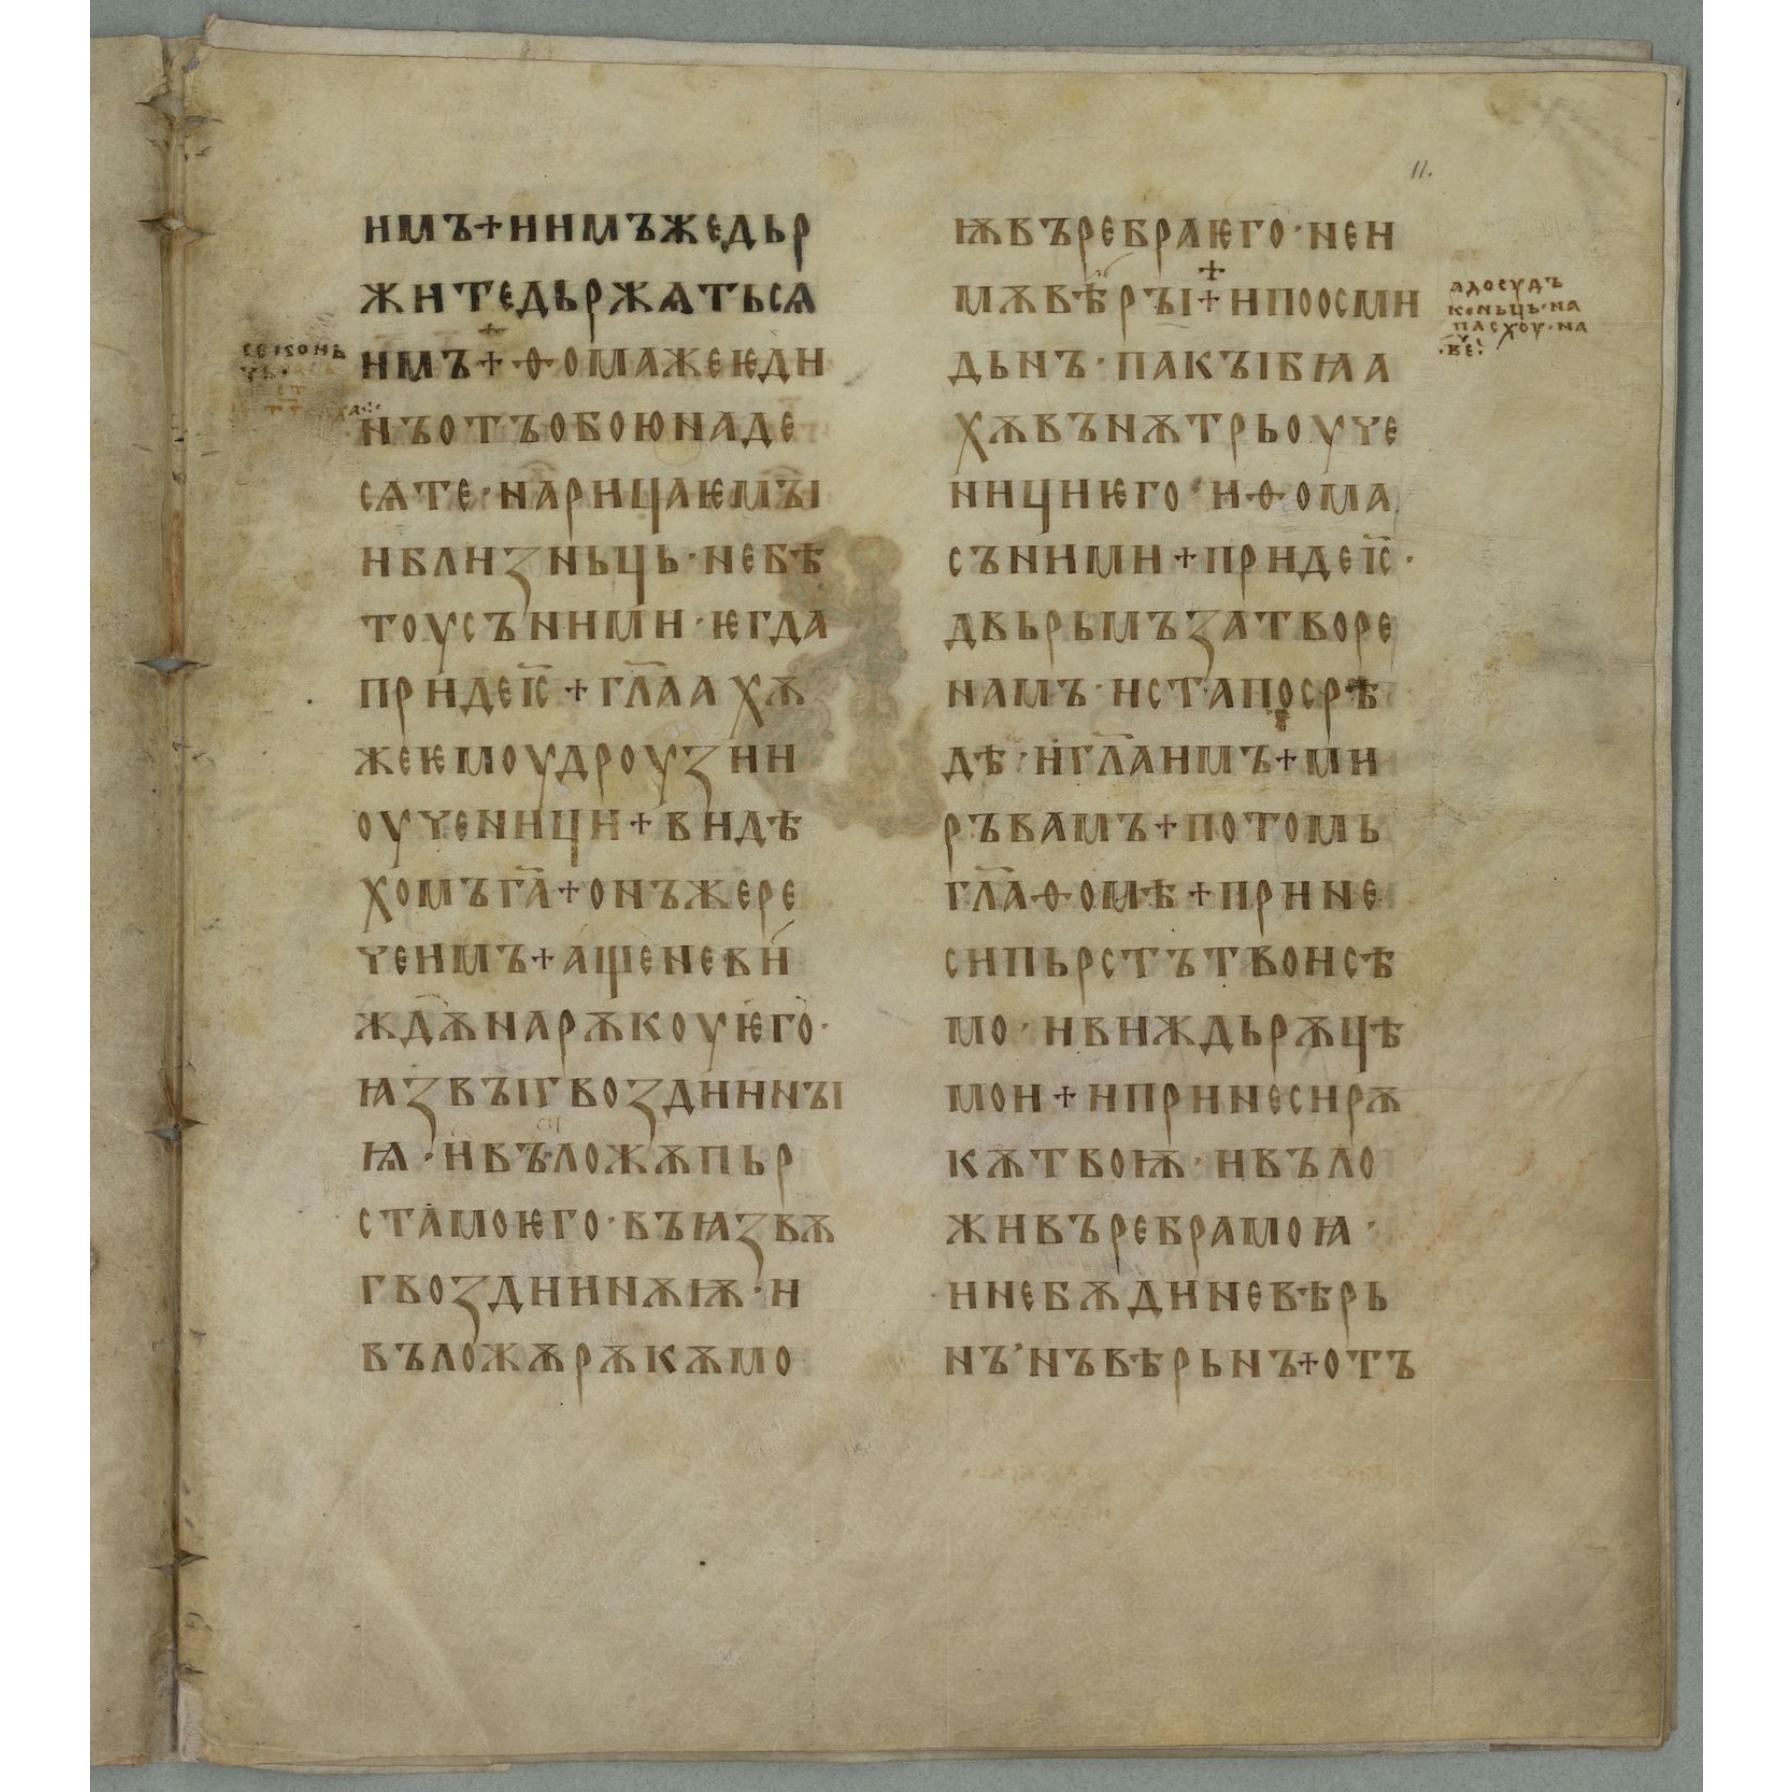 имъ+иимъжедьр
житедьржѧтьсѧ
имъ+ѳомажеѥди
нъотъобоюнаде
сѧте·нарицаѥмꙑи
иблизньць·небѣ
тоусъними·ѥгда
придеіс+глаахѫ
жеѥмоудроузии
оученици+видѣ
хомъга+онъжере
чеимъ+ащеневи
ждѫнарѫкоуѥго·
ꙗзвꙑгвоздиинꙑ
ꙗ·ивъложѫпьр
стамоѥго·въꙗзвѫ
гвоздиинѫѭ·и
въложѫрѫкѫмо
11.
ѭвъребраѥго·неи
мѫвѣрꙑ+ипоосми
дьнъ·пакꙑбꙗа
хѫвънѫтрьоуче
нициѥго·иѳома
съними+придеіс·
двьрьмъзатворе
намъ·истапосрѣ
дѣ·иглаимъ+ми
ръвамъ+потомь
глаѳомѣ+прине
сипьрстътвоисѣ
мо·ивиждьрѫцѣ
мои+ипринесирѫ
кѫтвоѭ·ивъло
живъребрамоꙗ·
инебѫдиневѣрь
нъ·нъвѣрьнъ+отъ
адосудъ
коньць·на
пасхоу·на
·ве҃ч: